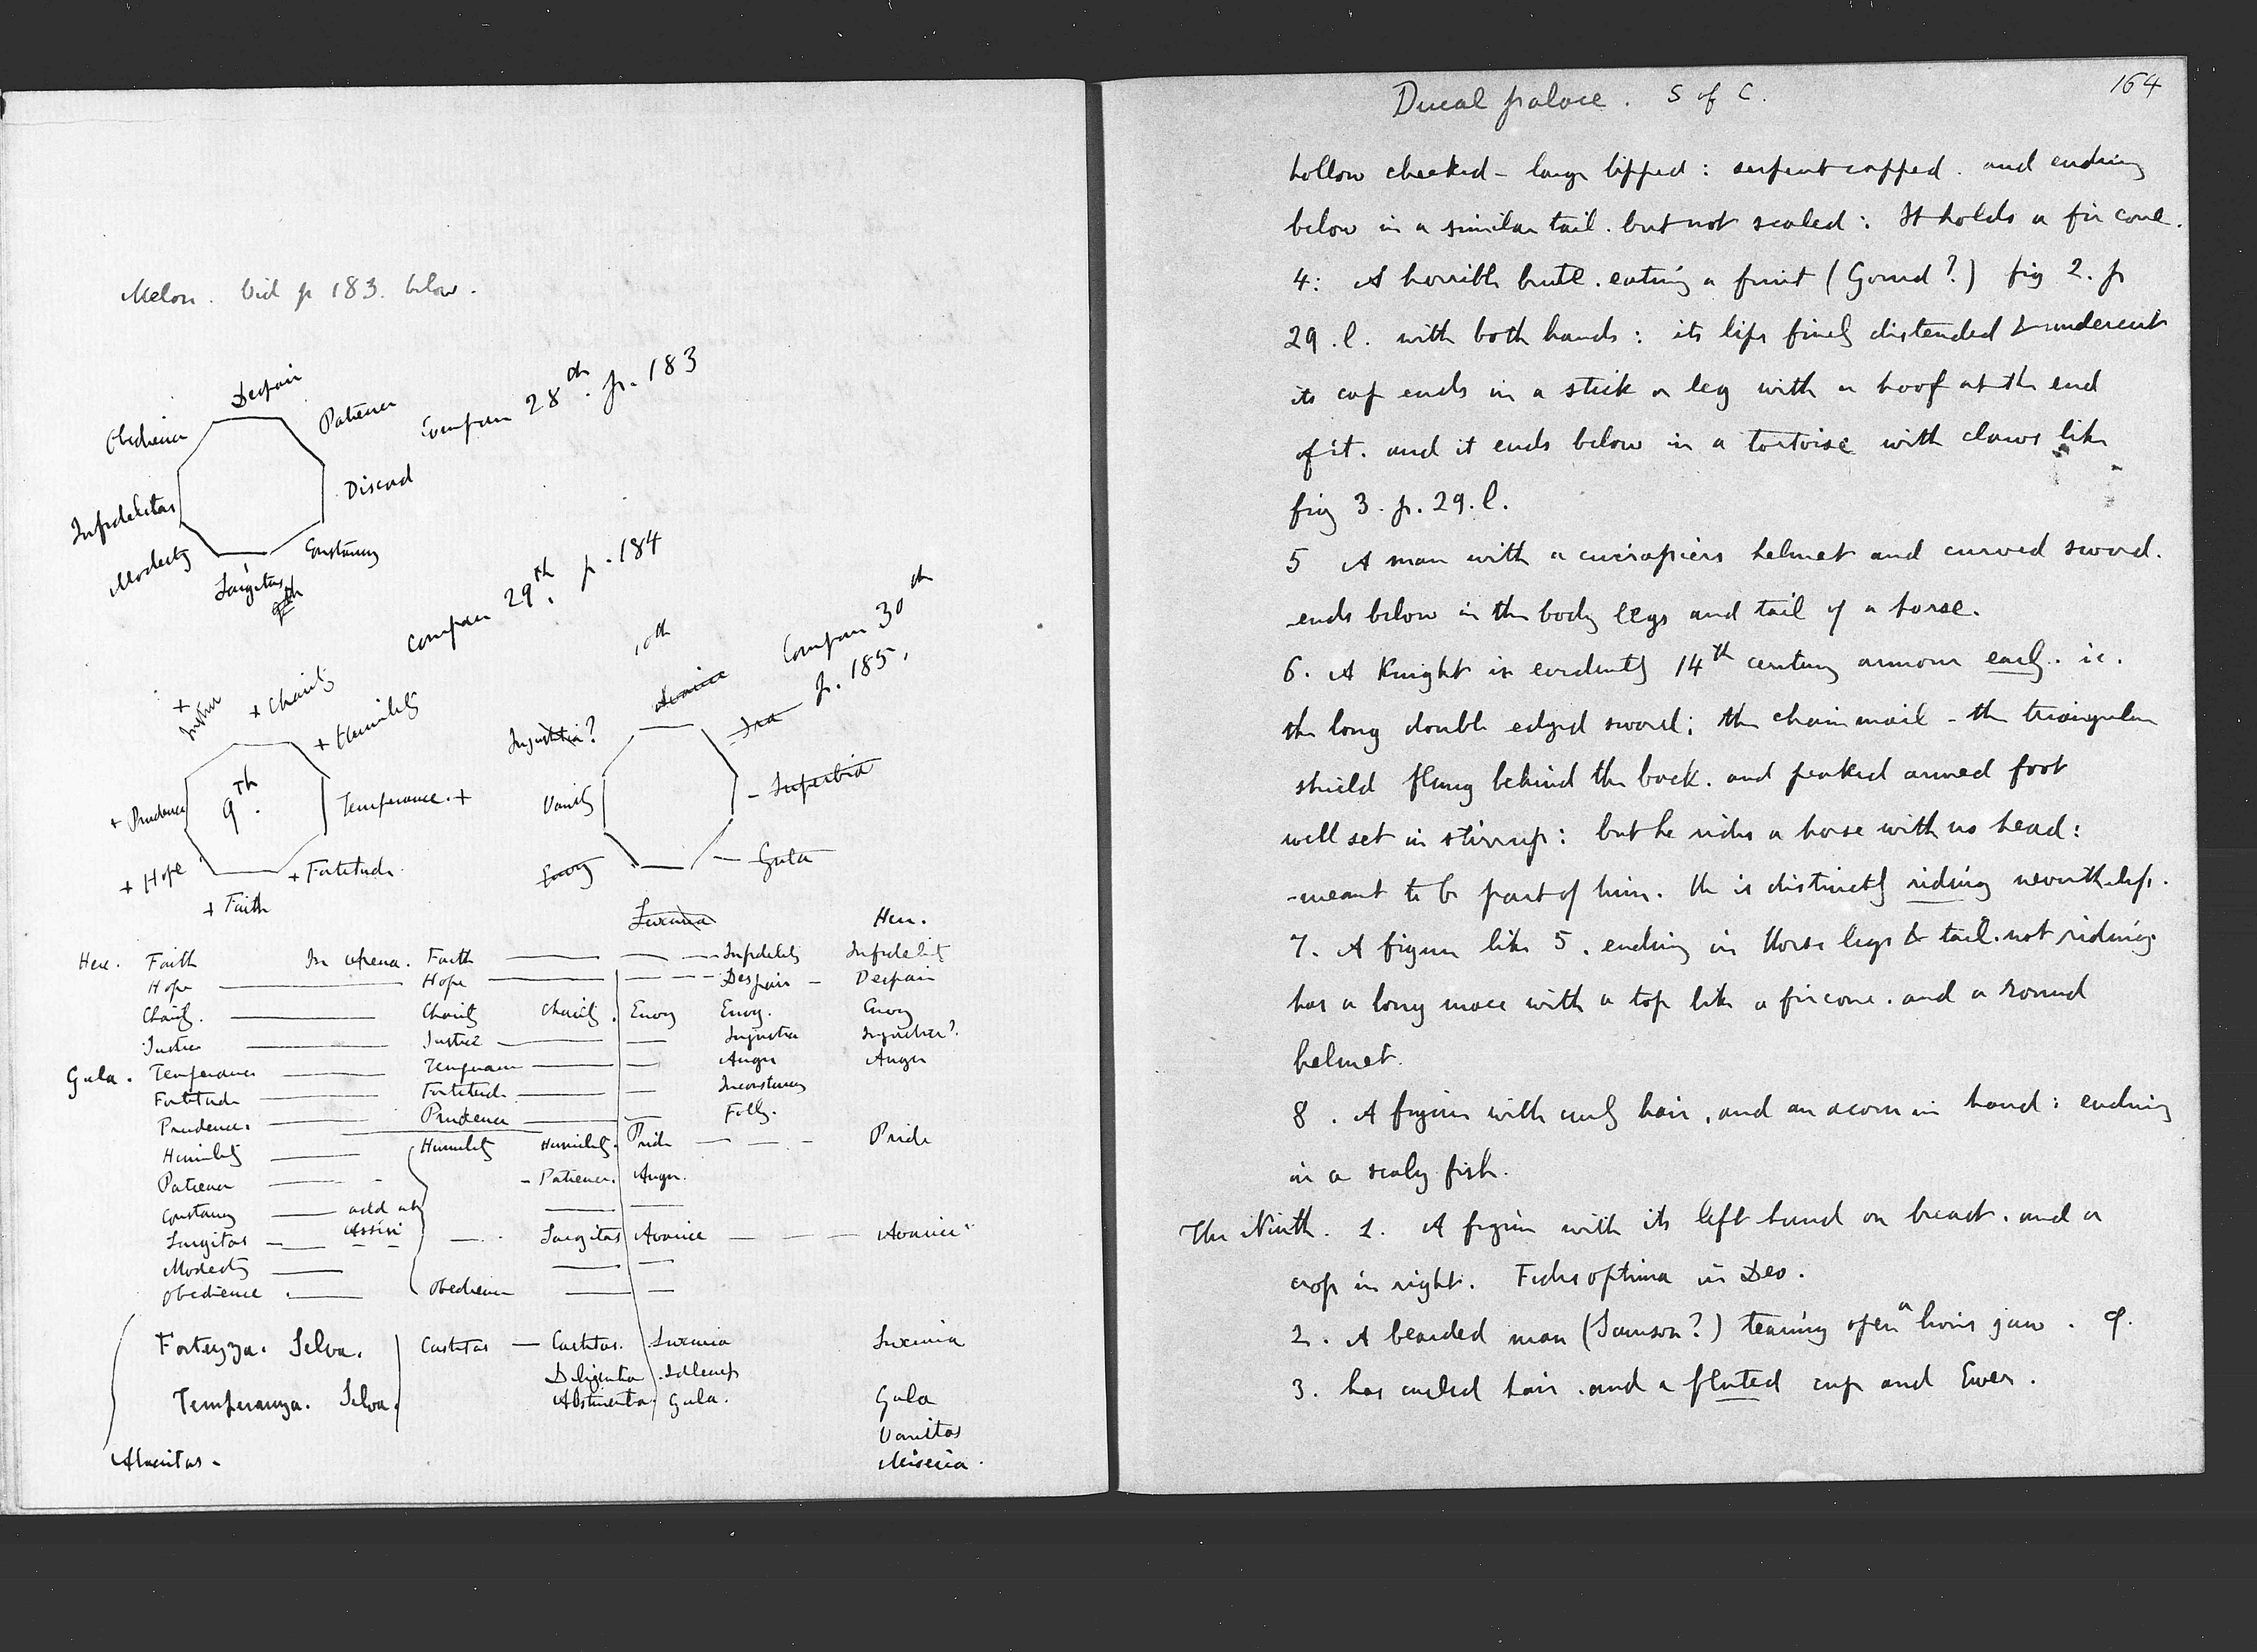 Melon. Vid p 183. below.
Despair
Obedience
Patience
Compare 28th. p. 183
Infidelitas
Discord
Modesty
Constancy
Largitas
9th
Compare 29th. p. 184
+ Justice
+ Charity
+ Humility
9th.
+ Prudence
Temperance. +
+ Hope
+ Fortitude.
+ Faith
10th
Compare 30th
p. 185.
Avarice
Injustitia?
- Ira
Vanity
- Superbia
Envy
- Gula
Luxuria
Here.
Here. Faith In Arena. Faith Infidelity Infidelity
Hope Hope Despair - Despair
Charity. Charity Charity. Envy Envy. Envy
Justice Justice Injustice Injustice?
Gula. Temperance Temperance Anger Anger
Fortitude Fortitude Inconstancy
Prudence. Prudence Folly.
Humility Humility Humility. Pride Pride
Patience - Patience. Anger.
Constancy add at
Largitas Assisi Largitas Avarice Avarice
Modesty
Obedience. Obedience
Fortezza. Selva. Castitas - Castitas. Luxuria Luxuria
Diligentia. Idleness
Temperanza. Selva. Abstinentia. Gula. Gula
Vanitas
Alacritas. Miseria.
Ducal palace. S of C.
164
hollow cheeked - large lipped: serpent capped. and ending
below in a similar tail. but not scaled: It holds a fir cone.
4: A horrible brute. eating a fruit (Gourd?) fig 2. p
29. l. with both hands: its lips finely distended & undercut
its cap ends in a stick or leg with a hoof at the end
of it. and it ends below in a tortoise with claws like
fig 3. p. 29. l.
5 A man with a cuirapiers helmet and curved sword.
ends below in the body legs and tail of a horse.
6. A Knight in evidently 14th century armour early. ie.
the long double edged sword; the chain mail - the triangular
shield flung behind the back. and peaked armed foot
well set in stirrup: but he rides a horse with no head:
-meant to be part of him. He is distinctly riding nevertheless.
7. A figure like 5. ending in Horse legs & tail. not riding.
has a long mace with a top like a fircone. and a round
helmet.
8. A figure with curly hair, and an acorn in hand: ending
in a scaly fish.
The Ninth. 1. A figure with its left hand on breast. and a
cross in right. Fides optima in Deo.
2. A bearded man (Samson?) tearing open a lions jaw. 9.
3. has curled hair. and a fluted cup and Ewer.